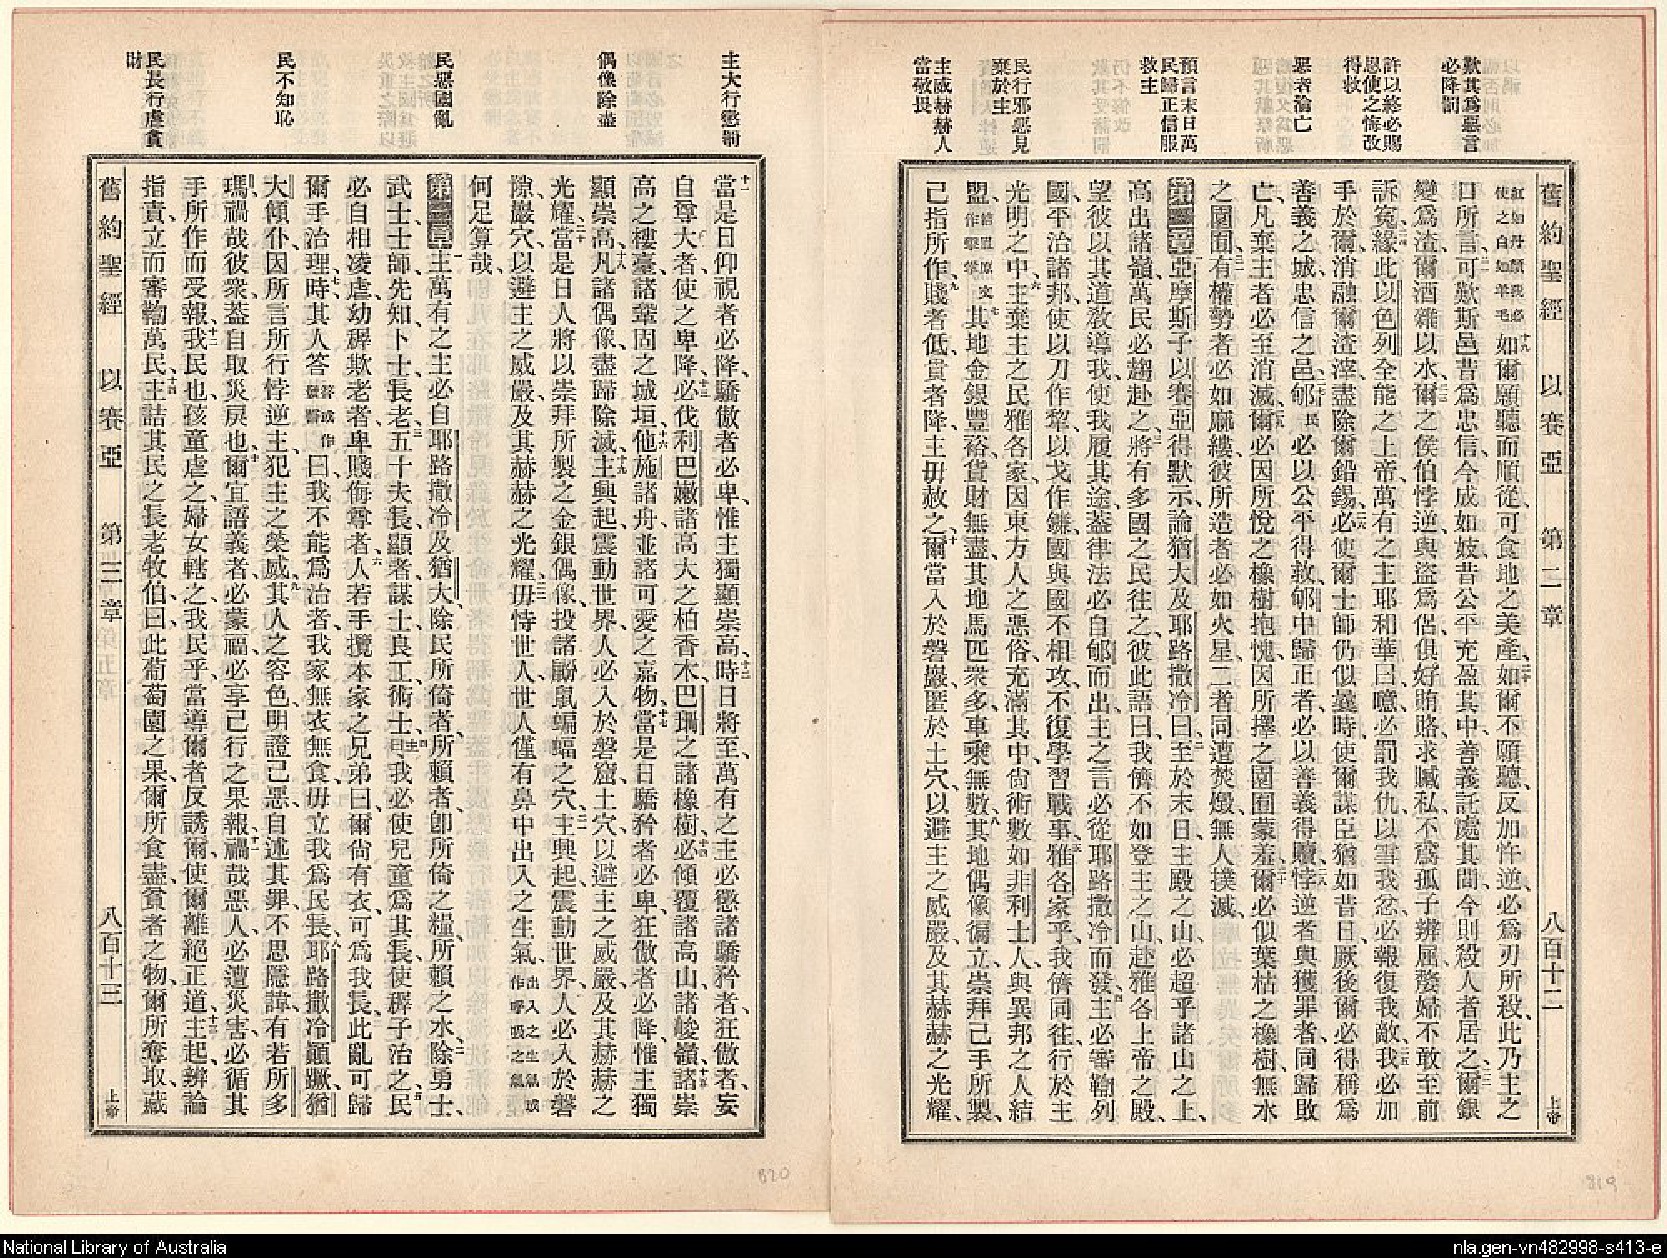 歎其為惡言
必降罰
許以終必賜
恩使之悔改
得救
惡者淪亡
預言末日萬
民歸正信服
救主
民行邪惡見
棄於主
主威赫赫人
當敬畏
舊約聖經 以賽亞 第二章 八百十二 上帝
紅如丹顏我必使之白如羊毛 十九如爾願聽而順從、可食地之美產、二十如爾不願聽、反加忤逆、必為刃所殺、此乃主之
口所言、二一可歎斯邑、昔為忠信、今成如妓、昔公平充盈其中、善義託處其間、今則殺人者居之、二二爾銀
變為渣、爾酒雜以水、二三爾之侯伯悖逆、與盜為侶、俱好賄賂、求贓私、不為孤子辨屈、嫠婦不敢至前
訴冤、二四緣此以色列全能之上帝、萬有之主耶和華曰、噫、必罰我仇、以雪我忿、必報復我敵、二五我必加
手於爾、消融爾渣滓、盡除爾鉛錫、二六必使爾士師仍似曩時、使爾謀臣猶如昔日、厥後爾必得稱為
善義之城、忠信之邑、二七郇民必以公平得救、郇中歸正者、必以善義得贖、二八悖逆者與獲罪者、同歸敗
亡、凡棄主者必至消滅、二九爾必因所悅之橡樹抱愧、因所擇之園囿蒙羞、三十爾必似葉枯之橡樹、無水
之園囿、三一有權勢者必如麻縷、彼所造者必如火星、二者同遭焚燬、無人撲滅、
第二章 亞摩斯子以賽亞得默示、論猶大及耶路撒冷曰、二至於末日、主殿之山、必超乎諸山之上、
高出諸嶺、萬民必趨赴之、三將有多國之民往之、彼此語曰、我儕不如登主之山、赴雅各上帝之殿、
望彼以其道教導我、使我履其途、蓋律法必自郇而出、主之言必從耶路撒冷而發、四主必審鞫列
國、平治諸邦、使以刀作犂、以戈作鐮、國與國不相攻、不復學習戰事、五雅各家乎、我儕同往、行於主
光明之中、六主棄主之民雅各家、因東方人之惡俗、充滿其中、尚術數如非利士人、與異邦之人結
盟、結盟原文作擊掌 七其地金銀豐裕、貨財無盡、其地馬匹眾多、車乘無數、八其地偶像徧立、崇拜己手所製、
己指所作、九賤者低、貴者降、主毋赦之、十爾當入於磐巖、匿於土穴、以避主之威嚴、及其赫赫之光耀、
主大行懲罰
偶像除盡
民惡國亂
民不知恥
民長行虐貪
財
十一當是日仰視者必降、驕傲者必卑、惟主獨顯崇高、十二時日將至、萬有之主必懲諸驕矜者、狂傲者、妄
自尊大者、使之卑降、十三必伐利巴嫩諸高大之柏香木、巴珊之諸橡樹、十四必傾覆諸高山、諸峻嶺、十五諸崇
高之樓臺、諸鞏固之城垣、十六他施諸舟、並諸可愛之嘉物、十七當是日驕矜者必卑、狂傲者必降、惟主獨
顯崇高、十八凡諸偶像、盡歸除滅、十九主興起震動世界、人必入於磐窟土穴、以避主之威嚴、及其赫赫之
光耀、二十當是日人將以崇拜所製之金銀偶像、投諸鼢鼠蝙蝠之穴、二一主興起震動世界、人必入於磐
隙巖穴、以避主之威嚴、及其赫赫之光耀、二二毋恃世人、世人僅有鼻中出入之生氣、出入之生氣或作呼吸之氣
何足算哉、
第三章 主萬有之主、必自耶路撒冷及猶大、除民所倚者、所賴者、即所倚之糧、所賴之水、二除勇士、
武士、士師、先知、卜士、長老、三五十夫長、顯者、謀士、良工、術士、四主曰、我必使兒童為其長、使穉子治之、五民
必自相凌虐、幼穉欺老者、卑賤侮尊者、六人若手攬本家之兄弟曰、爾尚有衣、可為我長、此亂可歸
爾手治理、七時其人答答或作發誓曰、我不能為治者、我家無衣無食、毋立我為民長、八耶路撒冷顛蹶、猶
大傾仆、因所言所行、悖逆主、犯主之榮威、九其人之容色、明證己惡、自述其罪、不思隱諱、有若所多
瑪、禍哉彼眾、蓋自取災戾也、十爾宜語義者必蒙福、必享己行之果報、十一禍哉惡人、必遭災害、必循其
手所作而受報、十二我民也、孩童虐之、婦女轄之、我民乎、當導爾者反誘爾、使爾離絕正道、十三主起辨論、
指責、立而審鞫萬民、十四主詰其民之長老牧伯曰、此葡萄園之果、爾所食盡、貧者之物、爾所奪取、藏
舊約聖經 以賽亞 第三章 八百十三 上帝
820
819
National Library of Australia
nla.gen-vn482998-s413-e